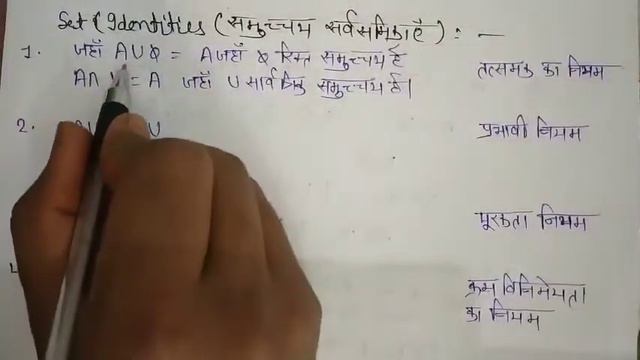 Set (Identities (समुच्चय सर्वसमिकाएँ) : —
1. जहाँ A∪Φ = A जहाँ Φ रिक्त समुच्चय है तत्समक का नियम
A∩ = A जहाँ ∪ सार्वत्रिक समुच्चय है।
2. ∪ प्रभावी नियम
पूरकता नियम
क्रम विनिमेयता
का नियम